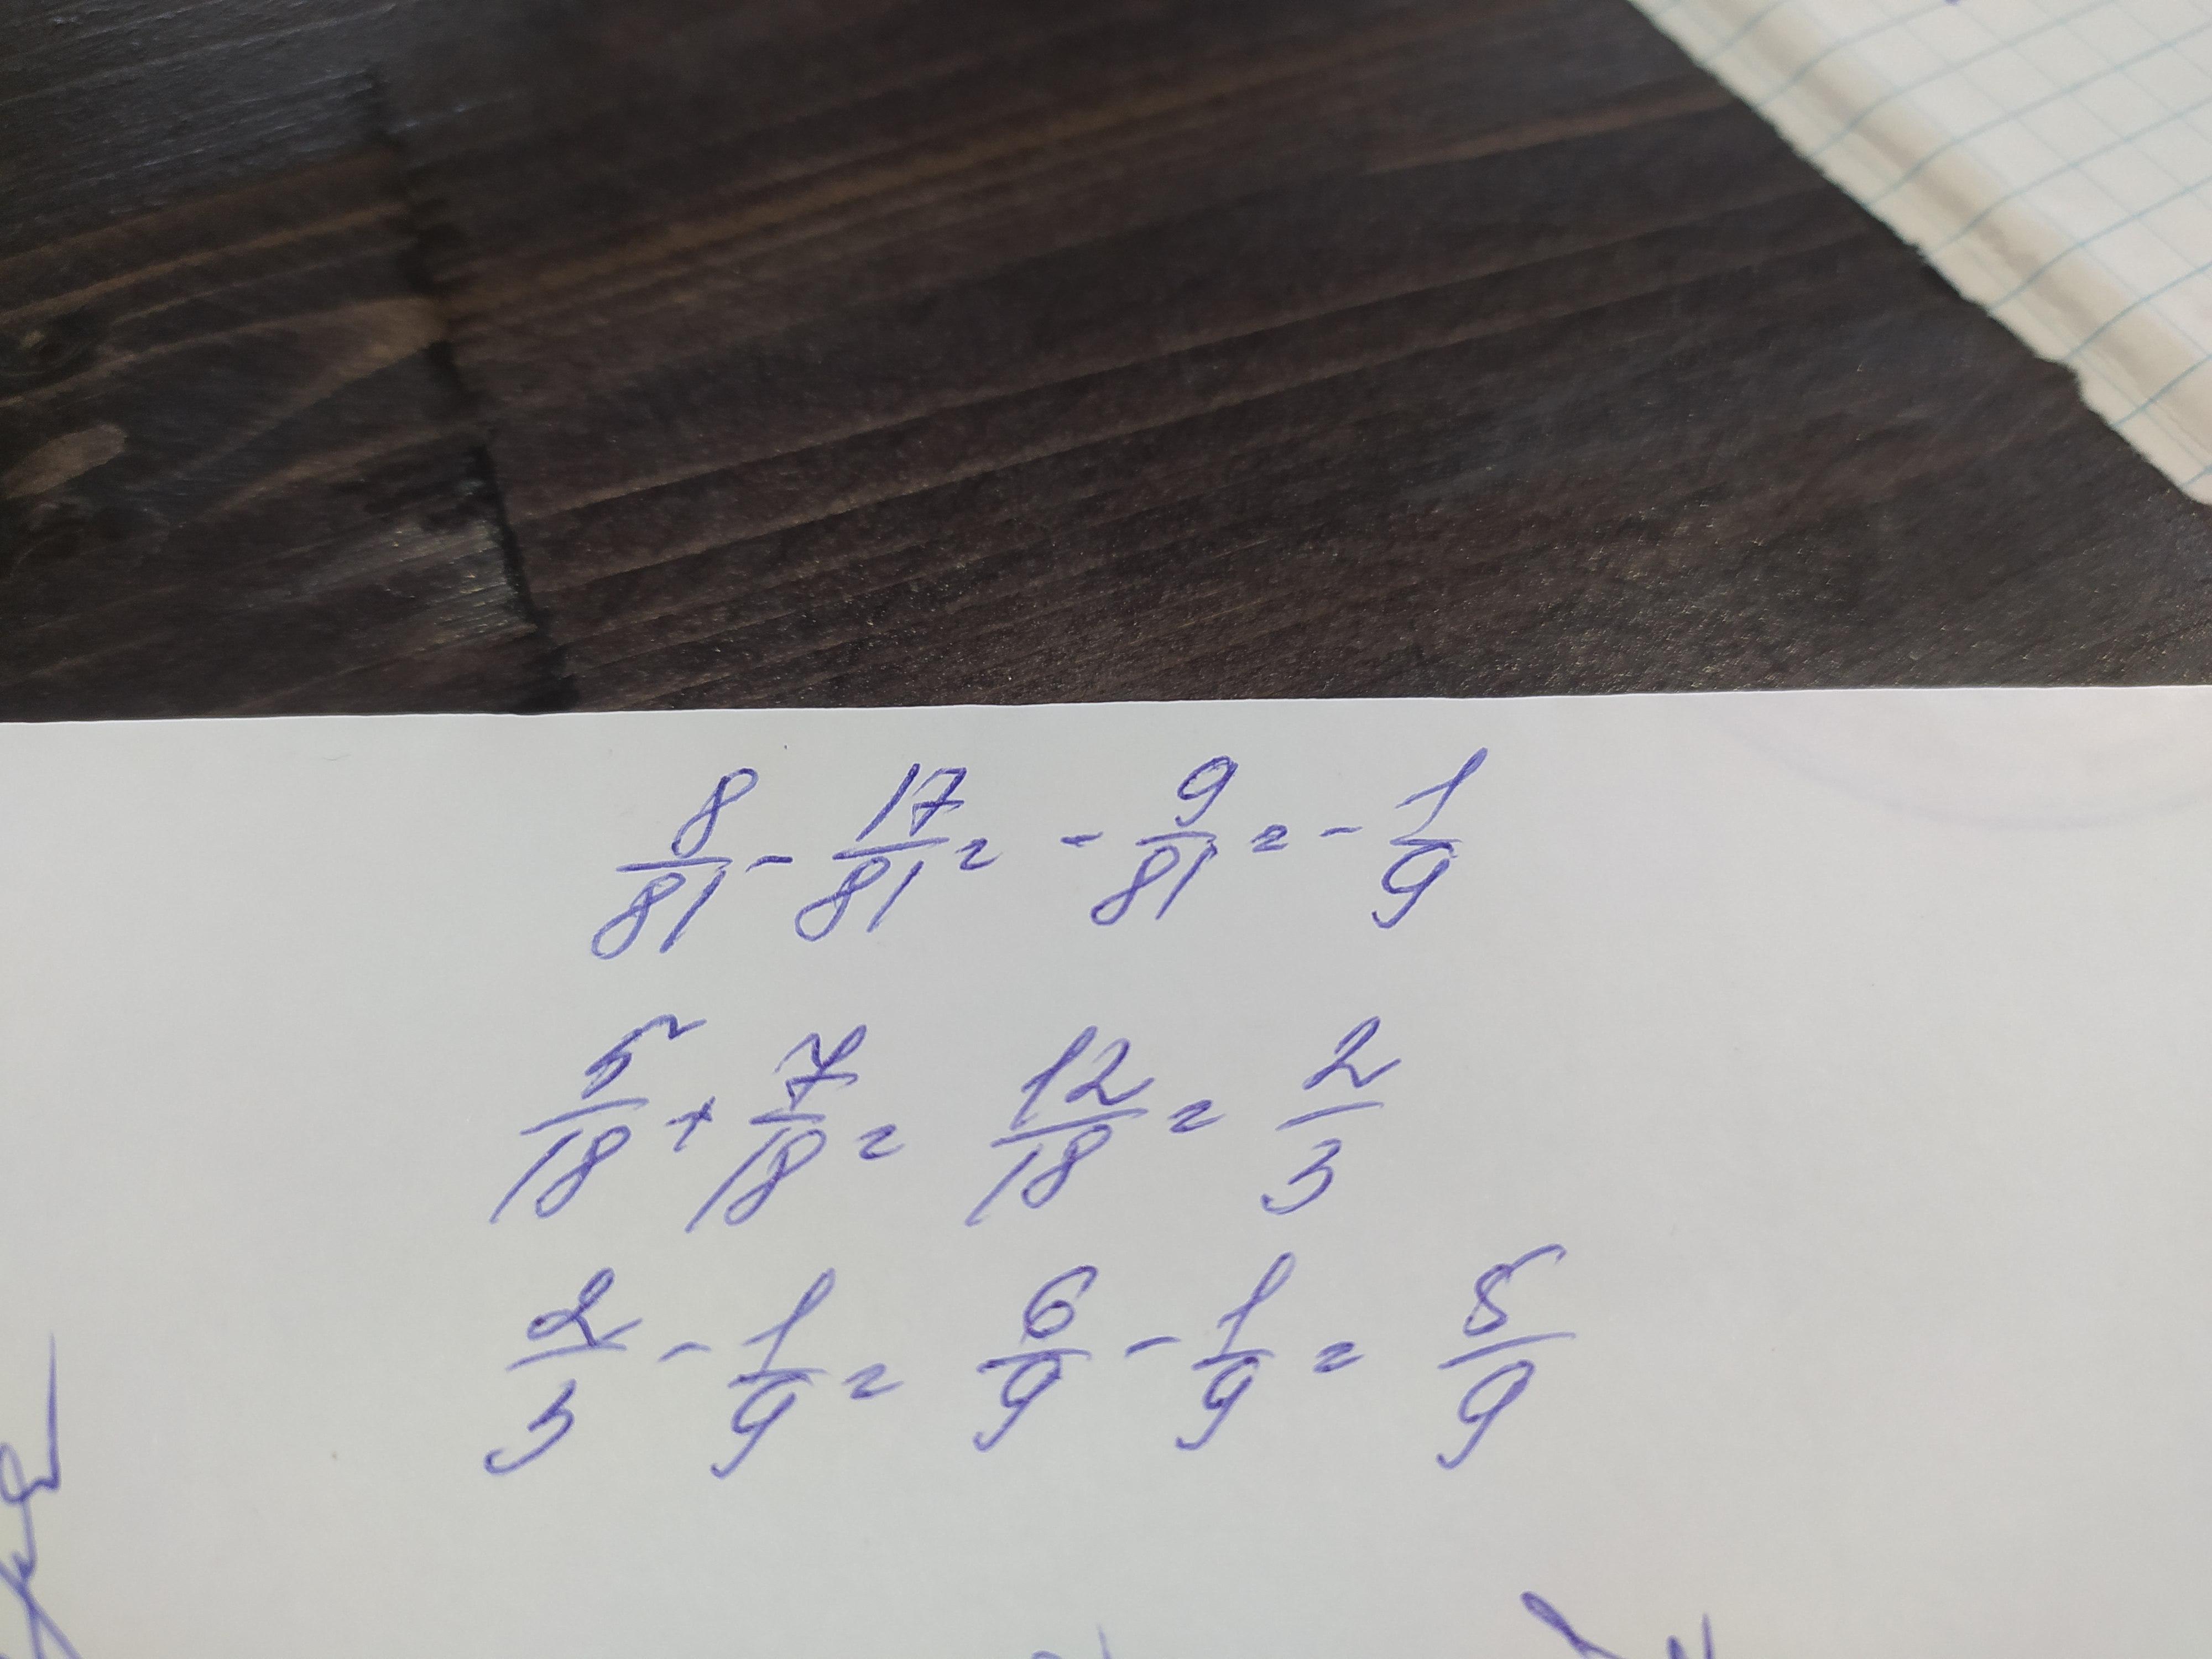 8/81 - 17/81 = - 9/81 = - 1/9
5/18 + 7/18 = 12/18 = 2/3
2/3 - 1/9 = 6/9 - 1/9 = 5/9